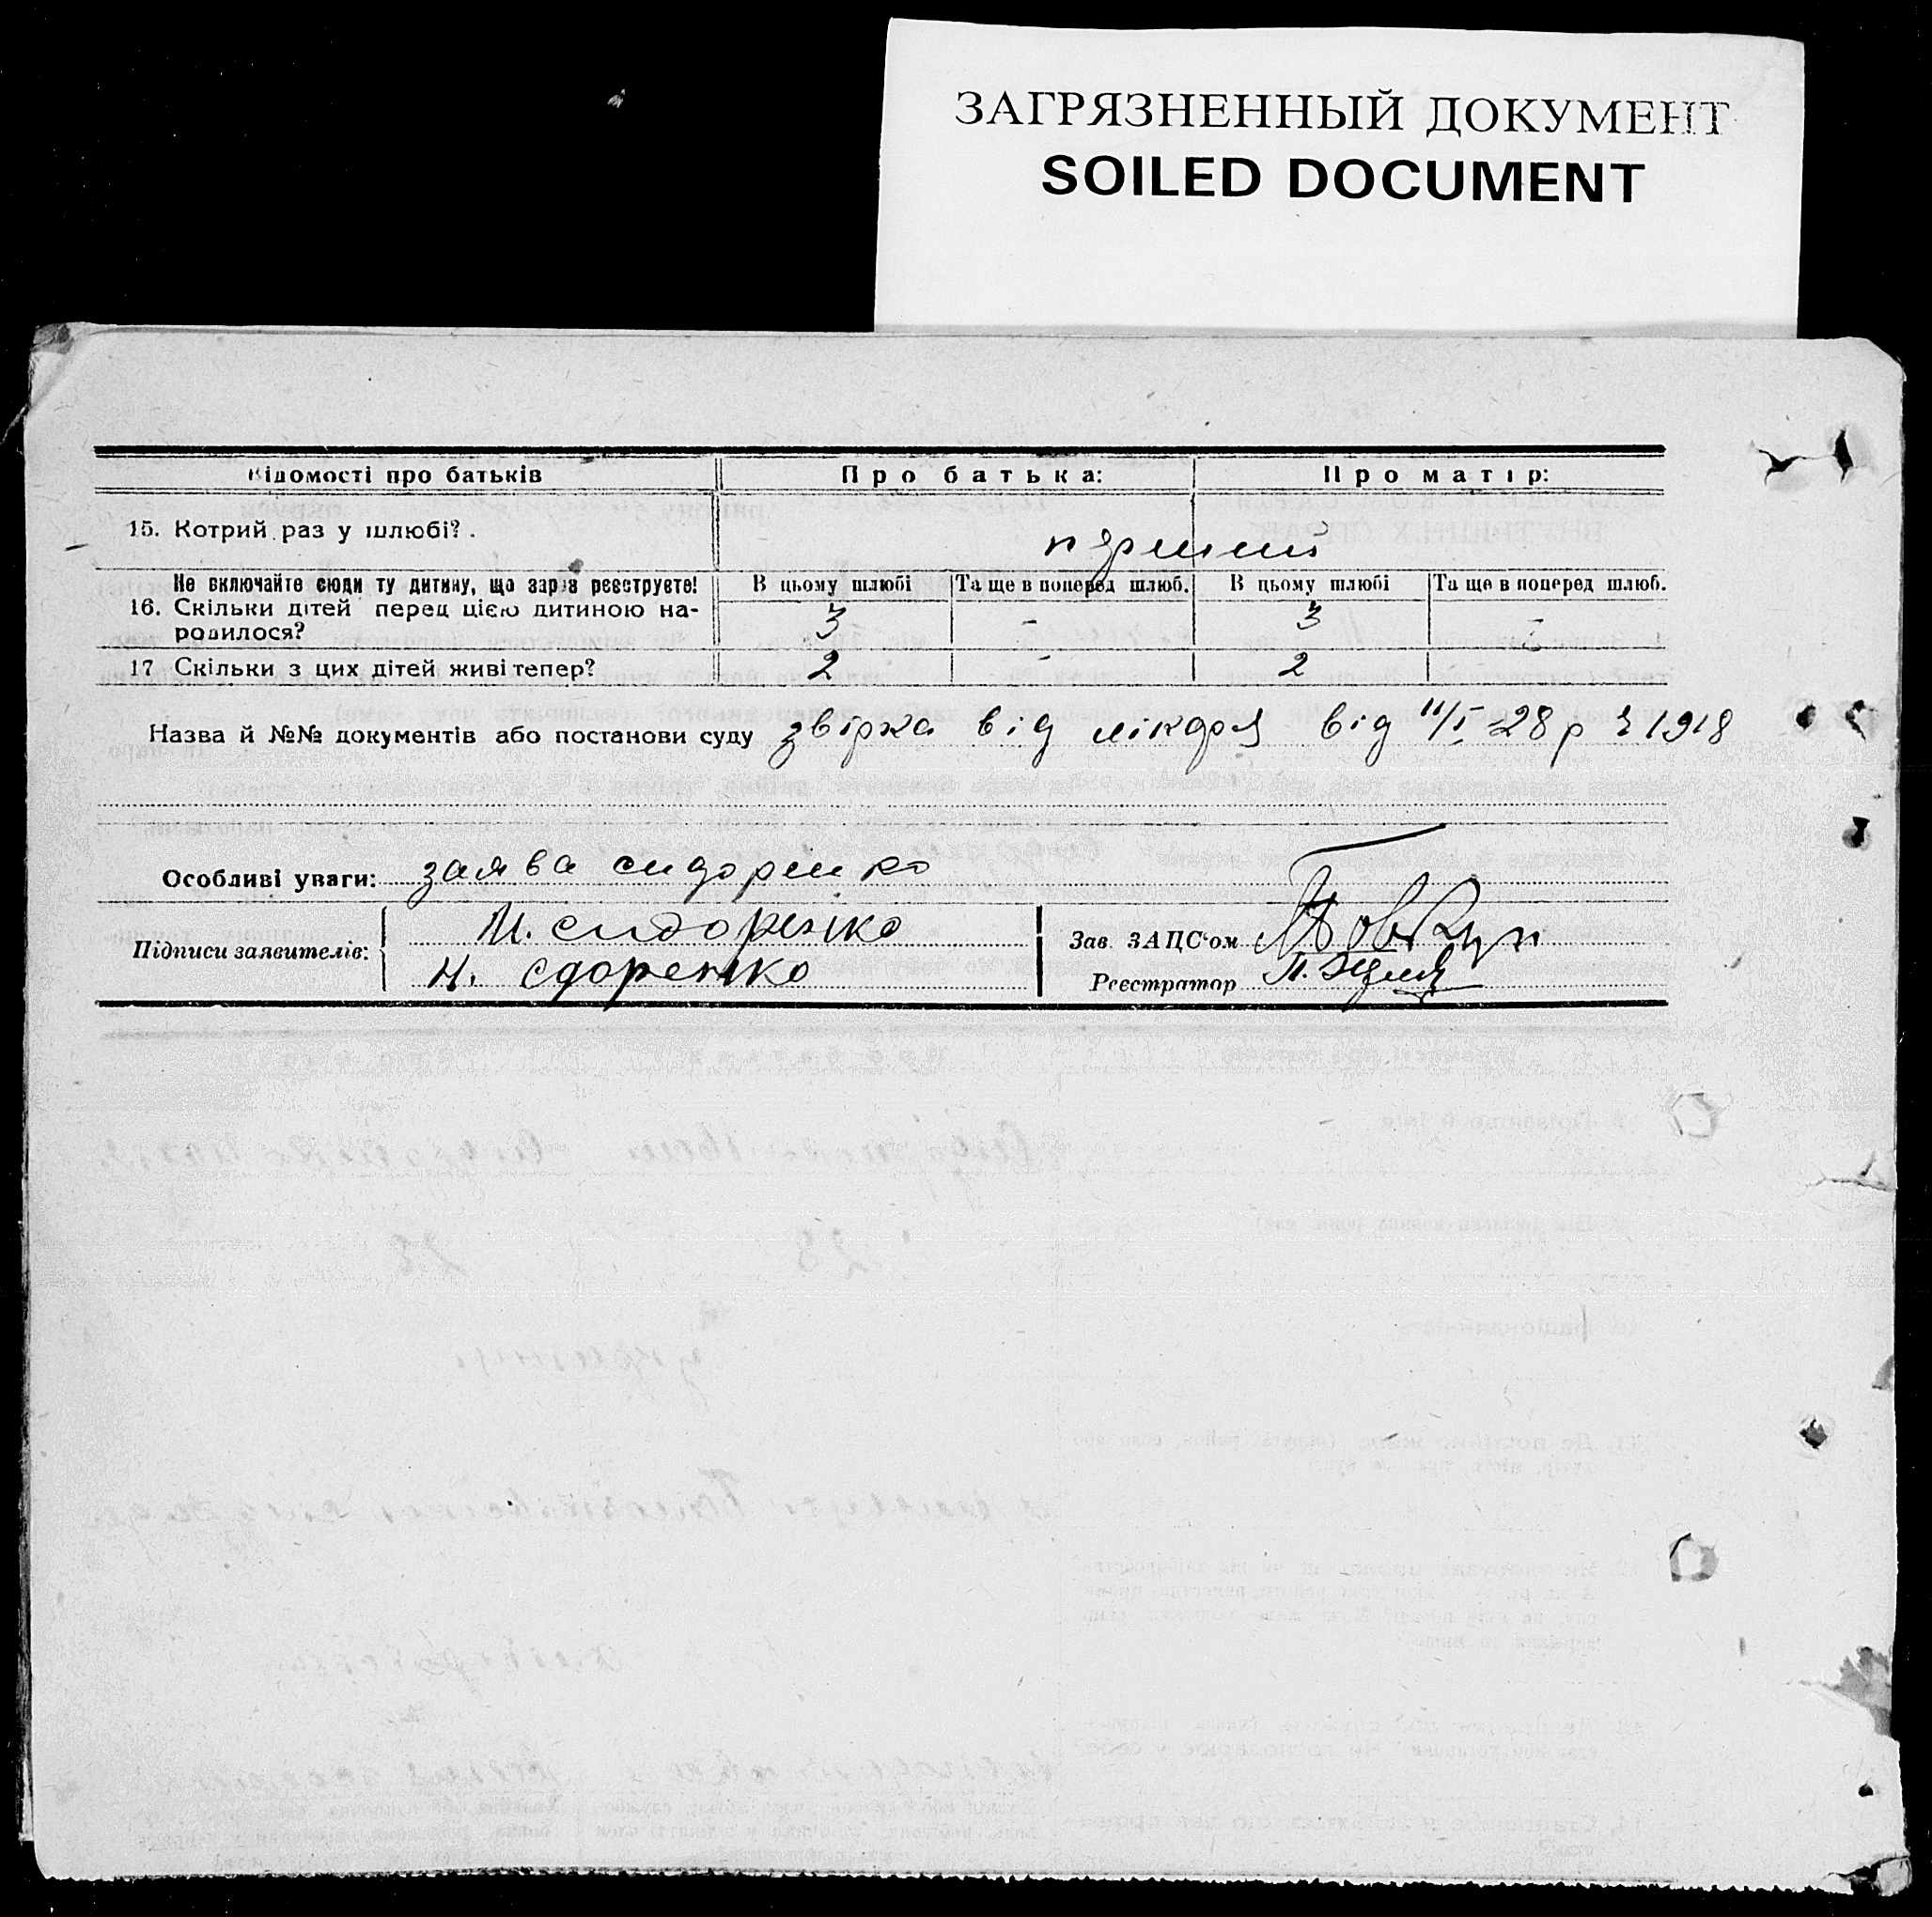 ЗАГРЯЗНЕННЫЙ ДОКУМЕНТ
SOILED DOCUMENT
Відомості про батьків Про батька: Про матір:
15. Котрий раз у шлюбі? перший
Не включайте сюди ту дитину, що зараз реєструєте! В цьому шлюбі Та ще в поперед шлюб. В цьому шлюбі Та ще в поперед шлюб.
16. Скільки дітей перед цією дитиною на- 3 - 3 -
родилося?
17 Скільки з цих дітей живі тепер? 2 - 2
Назва й №№ документів або постанови суду від лікаря від 11/I-28р 1918
Особливі уваги: заява сидоренко
Підписи заявителів: И. сидоренко
Н. сдоренко
Зав. ЗАЦС'ом
Реєстратор